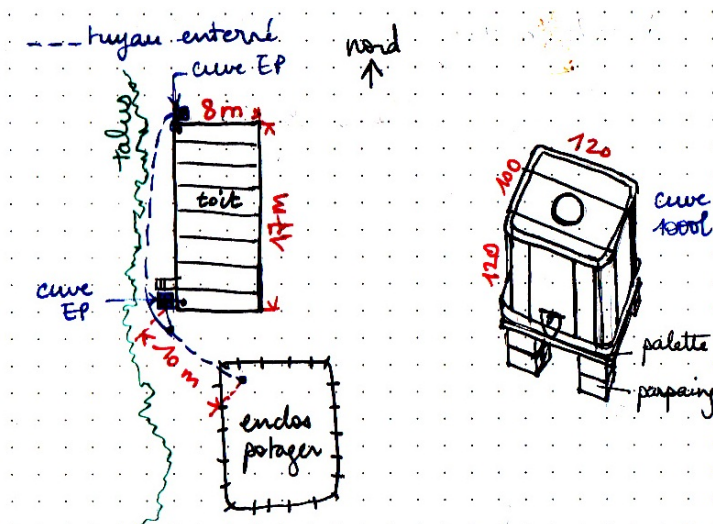 ---- tuyau enterré
cuve EP
nord
talus
8m
toit
17m
cuve
EP
10 m
enclos
potager
120
100
120
cuve
1000l
palette
parpaing